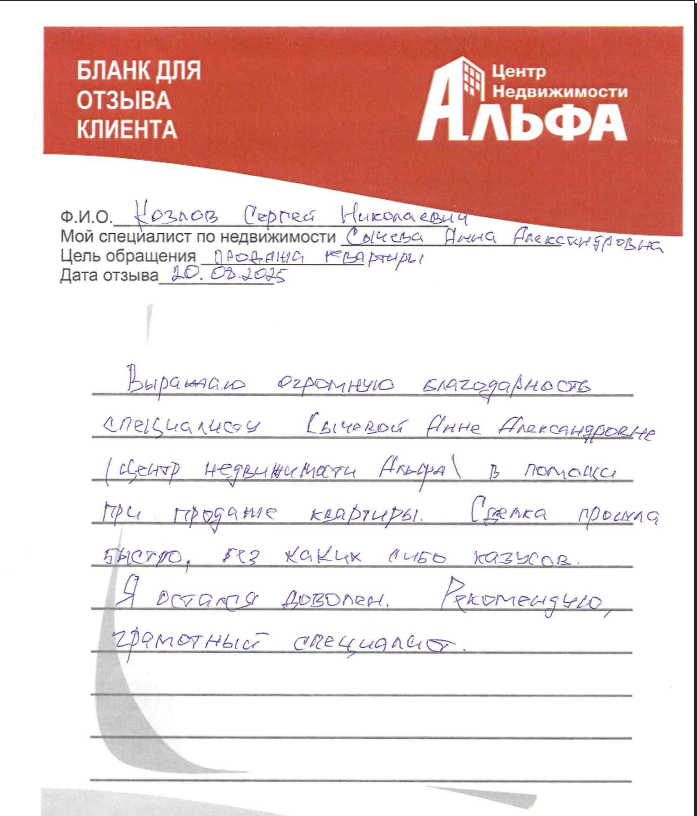 БЛАНК ДЛЯ
ОТЗЫВА
КЛИЕНТА
Центр
Недвижимости
АЛЬФА
Ф.И.О. Козлов Сергей Николаевич
Мой специалист по недвижимости Сычева Анна Александровна
Цель обращения продажа квартиры
Дата отзыва 20.08.2025
Выражаю огромную благодарность
специалисту Сычевой Анне Александровне
/Центр недвижимости Альфа\ в помощи
при продаже квартиры. Сделка прошла
быстро, без каких либо казусов.
Я остался доволен. Рекомендую,
грамотный специалист.